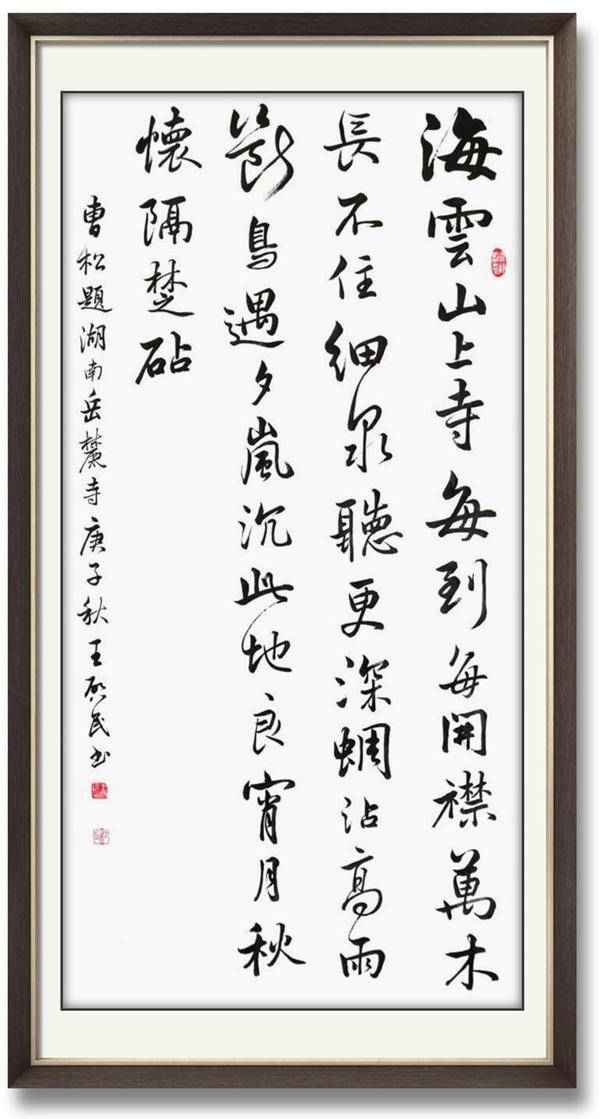 海雲山上寺每到每開襟萬木
長不住細泉聽更深蜩沾高雨
斷鳥遇夕嵐沉此地良宵月秋
懷隔楚砧
曹松題湖南岳麓寺庚子秋王民书